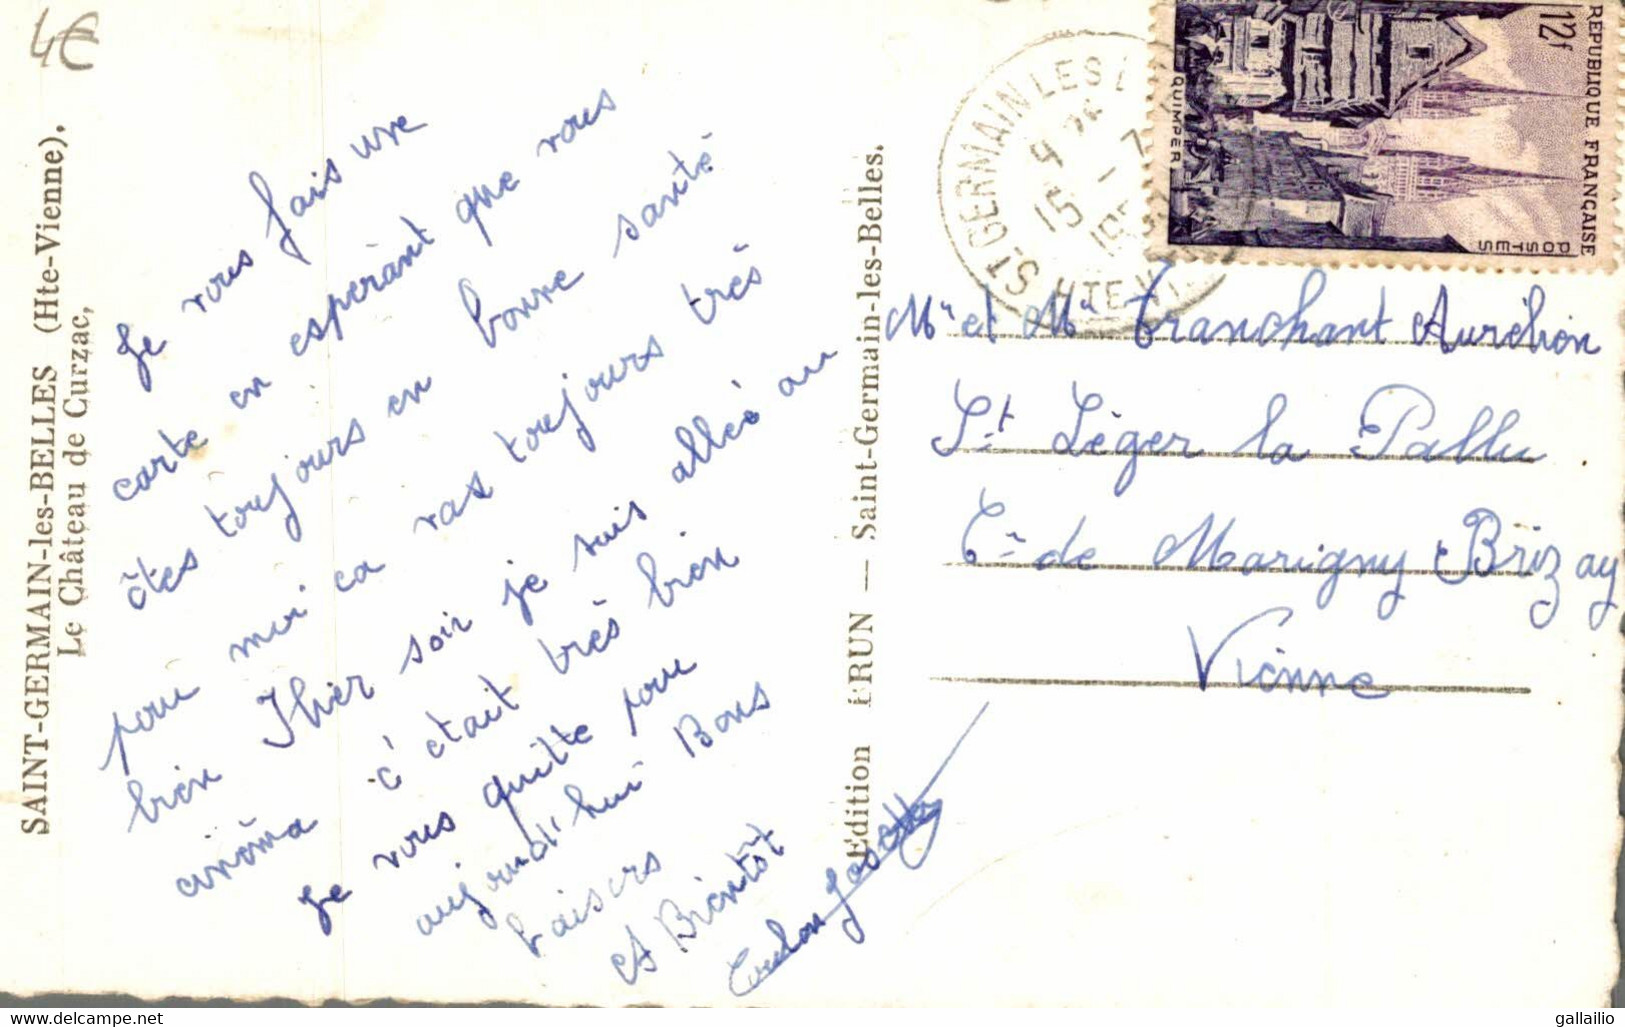 4€
SAINT-GERMAIN-les-BELLES (Hte-Vienne).
Le Château de Curzac,
Je vous fais une
carte en espèrant que vous
êtes toujours en bonne santé
pour moi ca vas toujours très
bien Ihier soir je suis alleé au
cinéma c'était très bien
Je vous quitte pour
aujourd'hui Bons
baisers
A Bientôt
Josette
Edition BRUN — Saint-Germain-les-Belles.
ST GERMAIN LES B
HTE VI
15 - 7
REPUBLIQUE FRANÇAISE
12f
QUIMPER
POSTES
Mr et Mm Tranchant Aurélien
St Lèger la Pallu
Cne de Marigny Brizay
Vienne
gallailio